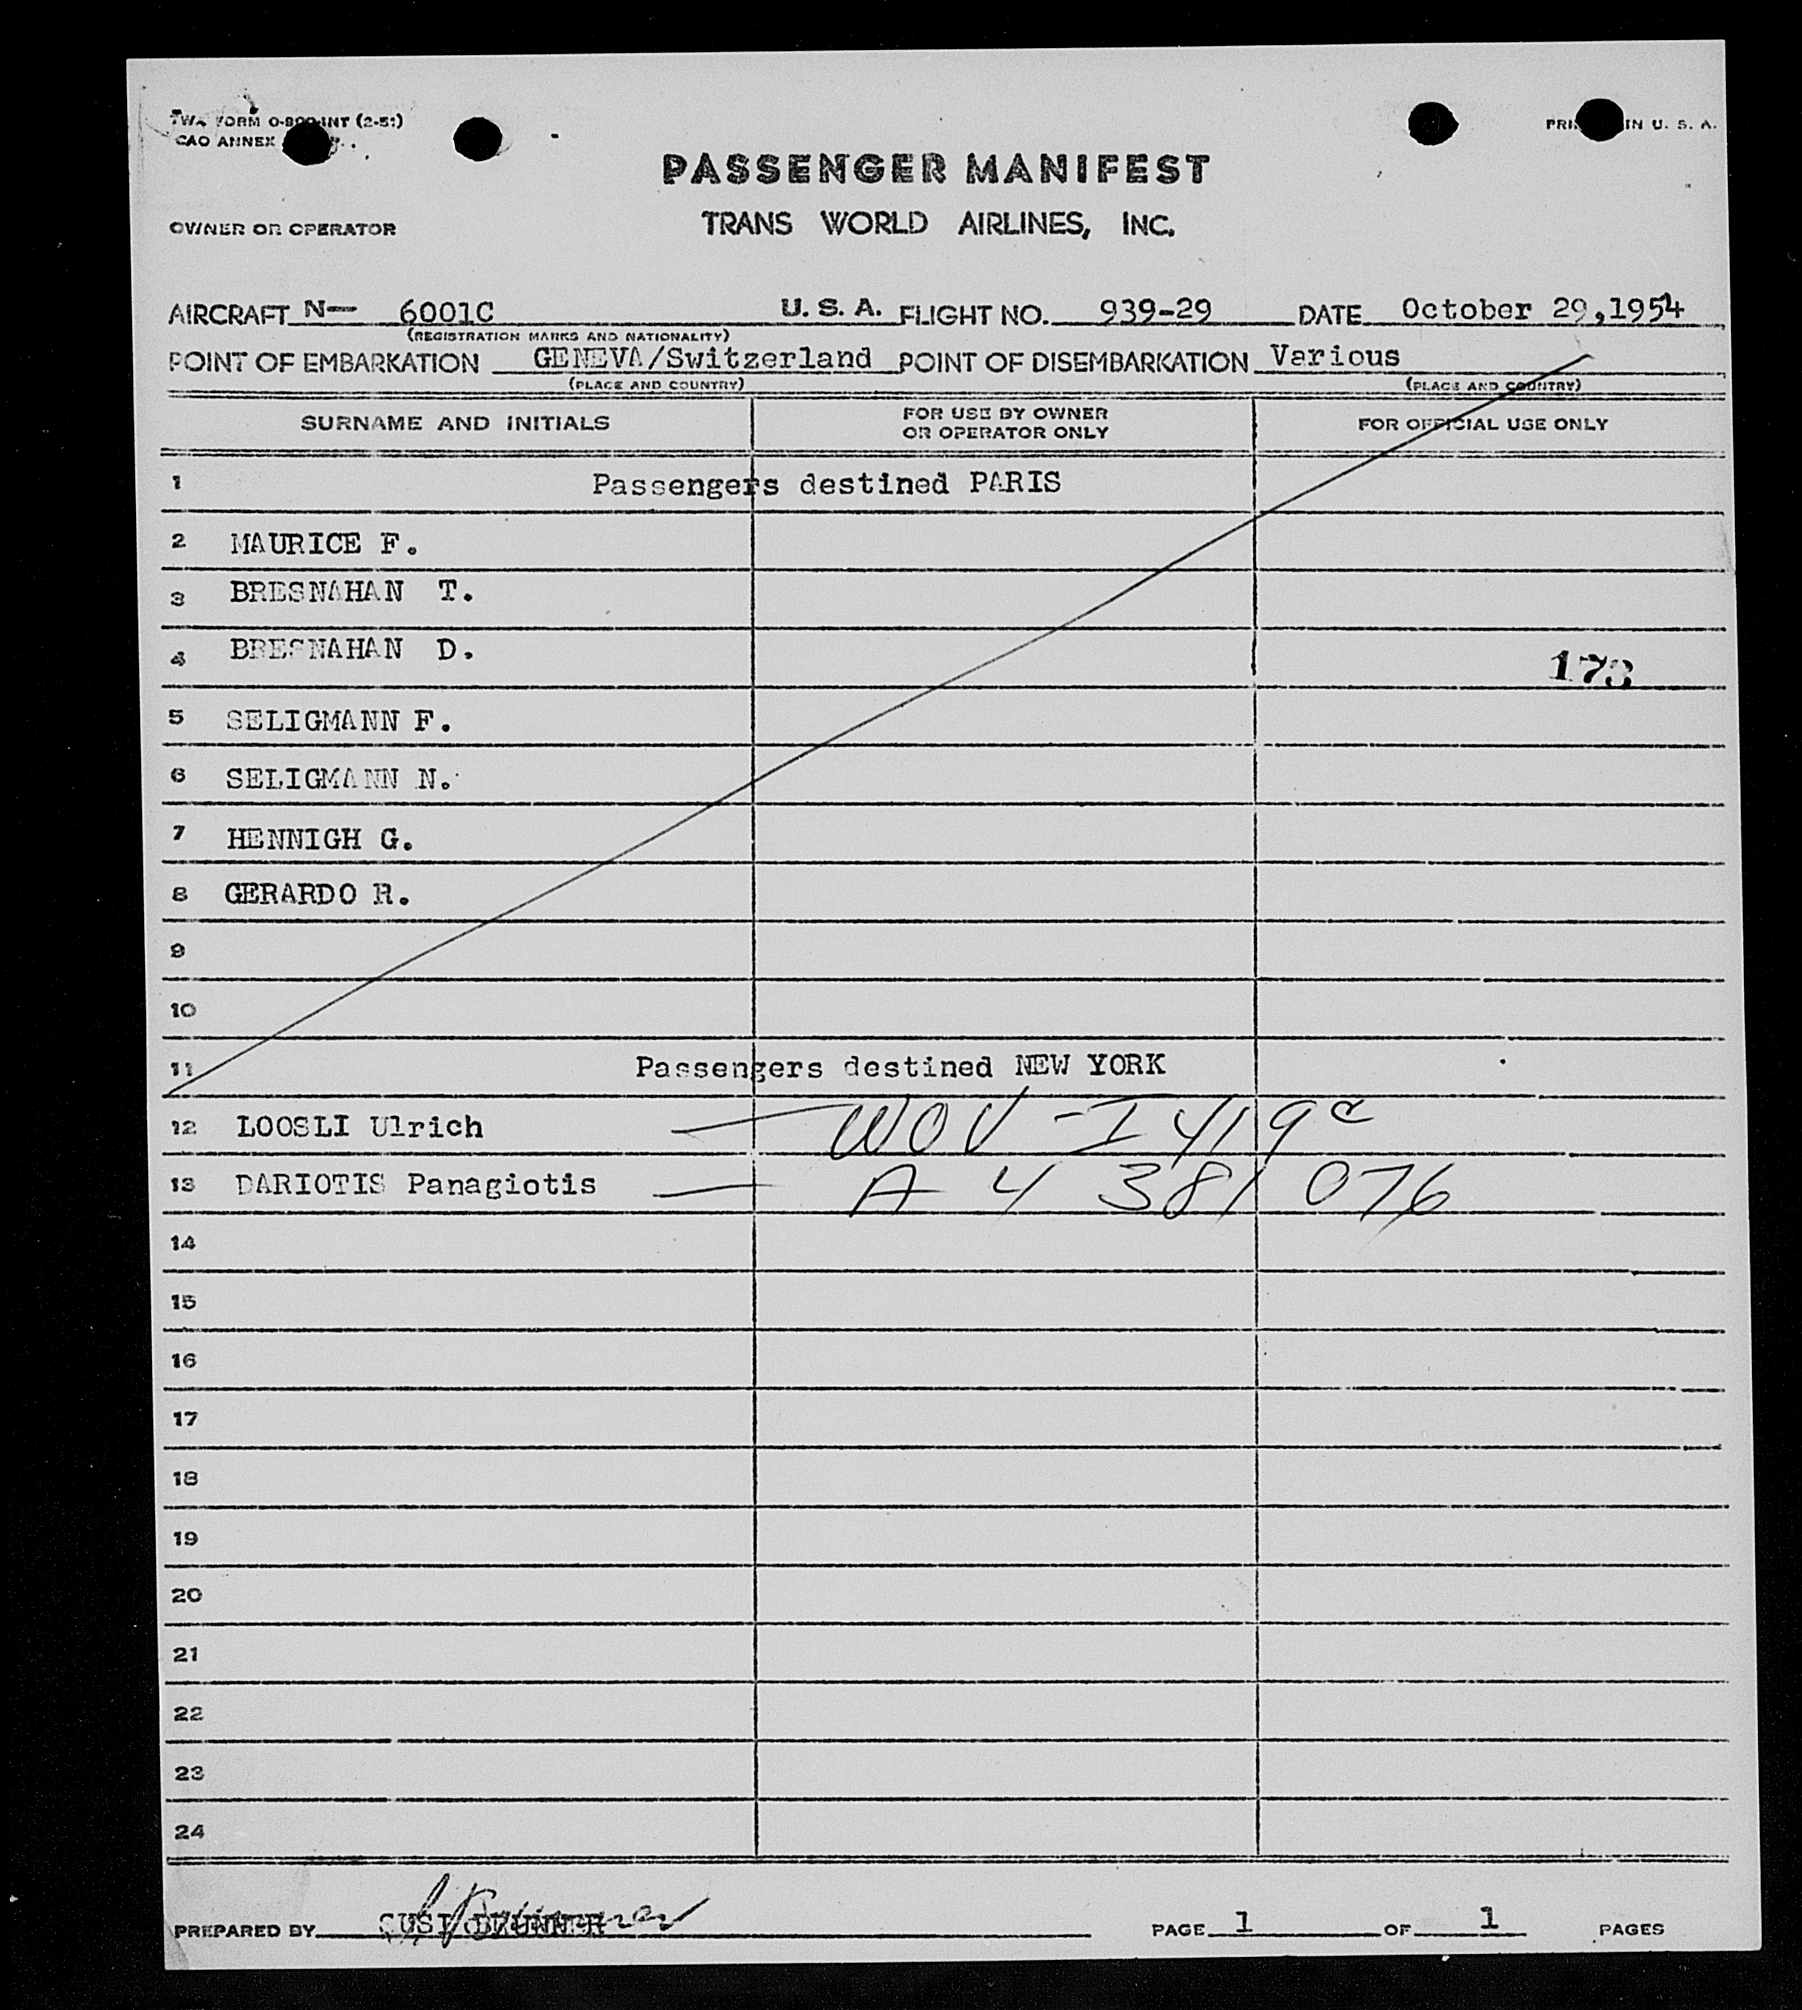 TWA FORM O-800-INT (2-51)
CAO ANNEX
PRINTED IN U. S. A.
PASSENGER MANIFEST
OWNER OR OPERATOR TRANS WORLD AIRLINES, INC.
AIRCRAFT N— 6001C U. S. A. FLIGHT NO. 939-29 DATE October 29,1954
(REGISTRATION MARKS AND NATIONALITY)
POINT OF EMBARKATION GENEVA/Switzerland POINT OF DISEMBARKATION Various
(PLACE AND COUNTRY) (PLACE AND COUNTRY)
SURNAME AND INITIALS FOR USE BY OWNER OR OPERATOR ONLY FOR OFFICIAL USE ONLY
1 Passengers destined PARIS
2 MAURICE F.
3 BRESNAHAN T.
4 BRESNAHAN D. 173
5 SELIGMANN F.
6 SELIGMANN N.
7 HENNIGH G.
8 GERARDO R.
9
10
11 Passengers destined NEW YORK
12 LOOSLI Ulrich — WOV - I 419
13 DARIOTIS Panagiotis — A 4 381 076
14
15
16
17
18
19
20
21
22
23
24
PREPARED BY PAGE 1 OF 1 PAGES